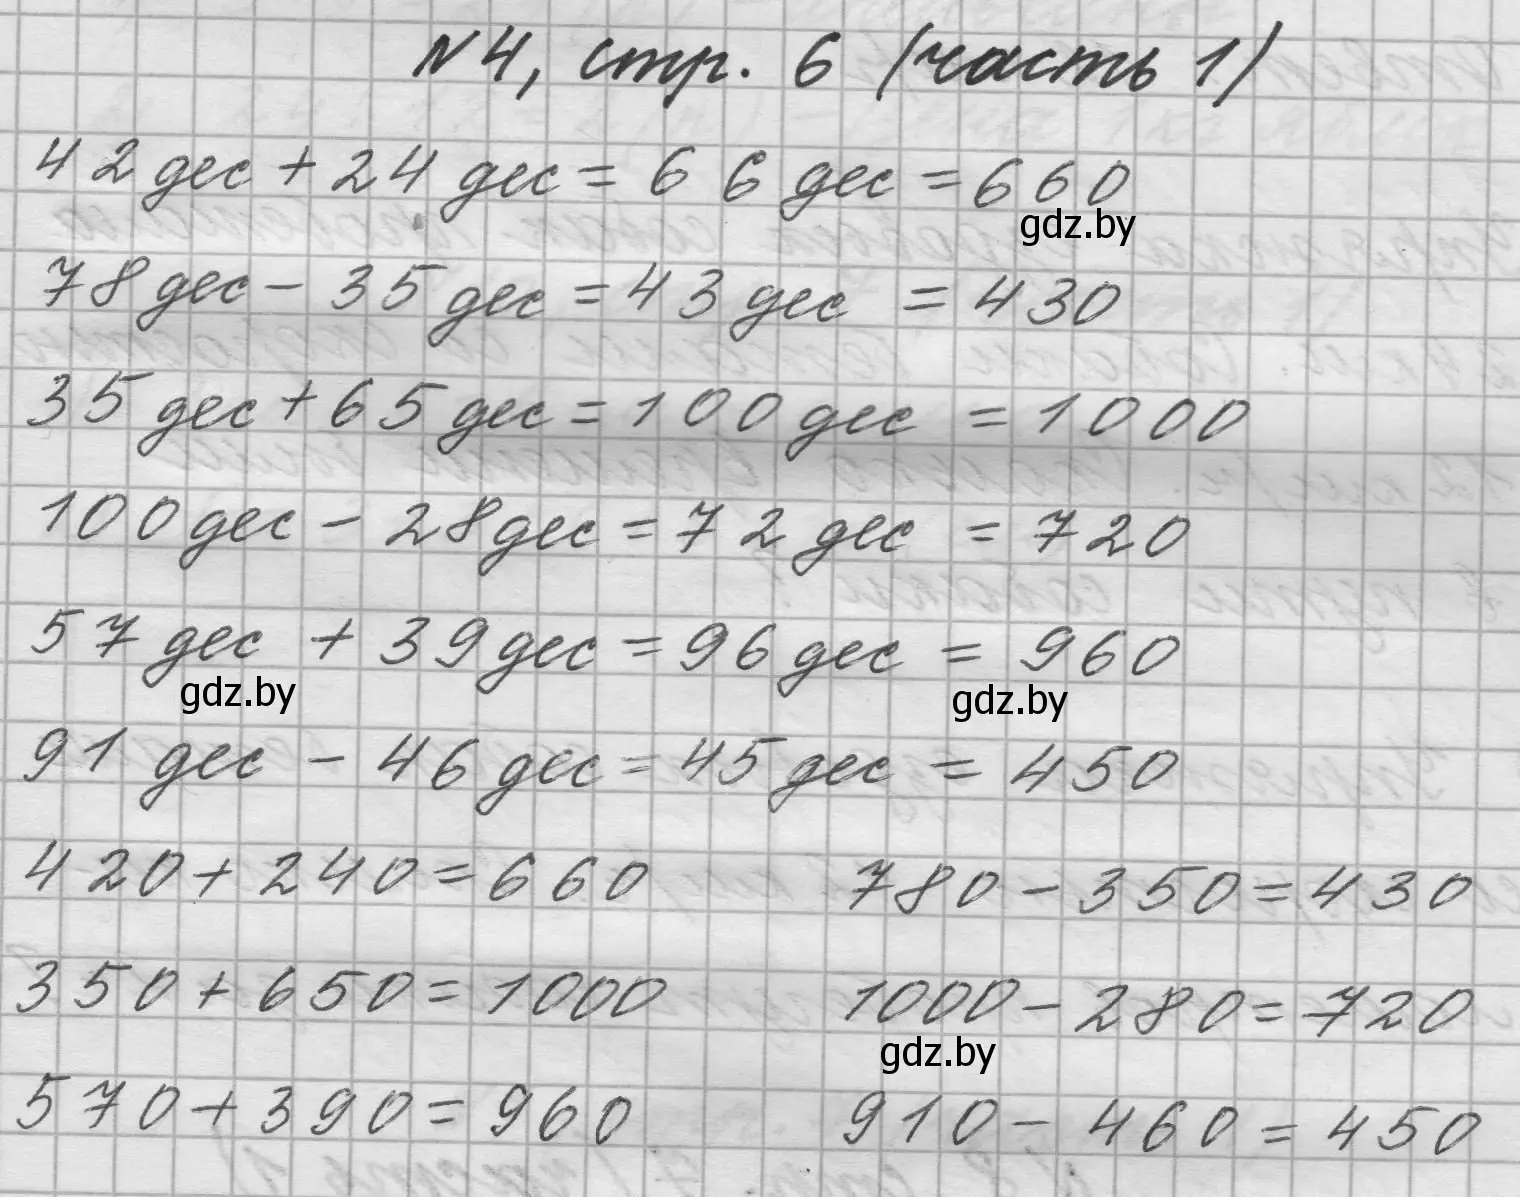 N4, стр. 6 (часть 1)
42 дес + 24 дес = 66 дес = 660
gdz.by
78 дес - 35 дес = 43 дес = 430
35 дес + 65 дес = 100 дес = 1000
100 дес - 28 дес = 72 дес = 720
57 дес + 39 дес = 96 дес = 960
gdz.by gdz.by
91 дес - 46 дес = 45 дес = 450
420 + 240 = 660 780 - 350 = 430
350 + 650 = 1000 1000 - 280 = 720
gdz.by
570 + 390 = 960 910 - 460 = 450